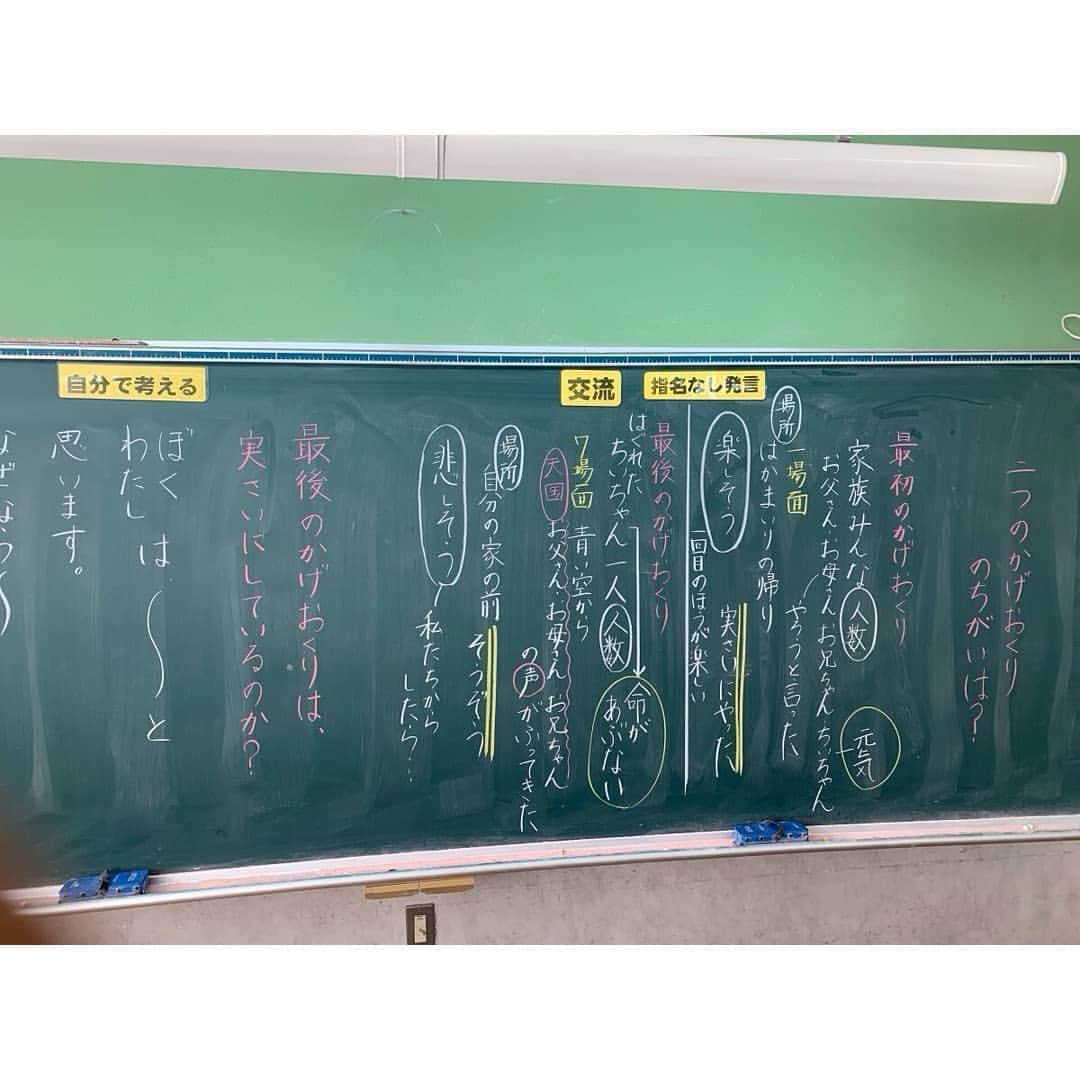 二つのかげおくり
のちがいは?
最初のかげおくり
家族みんな 人数
お父さん、お母さん、お兄ちゃん、ちぃちゃん
元気
やろうと言った
場所
一場面
はかまいりの帰り
実さいにやった
楽しそう
一回目のほうが楽しい
指名なし発言
最後のかげおくり
はぐれた
ちぃちゃん 一人 人数
命が
あぶない
交流
7場面 青い空から
天国 お父さん、お母さん、お兄ちゃん
の声がふってきた
場所
自分の家の前
そうぞう
悲しそう
私たちから
したら…
最後のかげおくりは、
実さいにしているのか?
自分で考える
ぼく
わたし は 〜 と
思います。
なぜなら〜